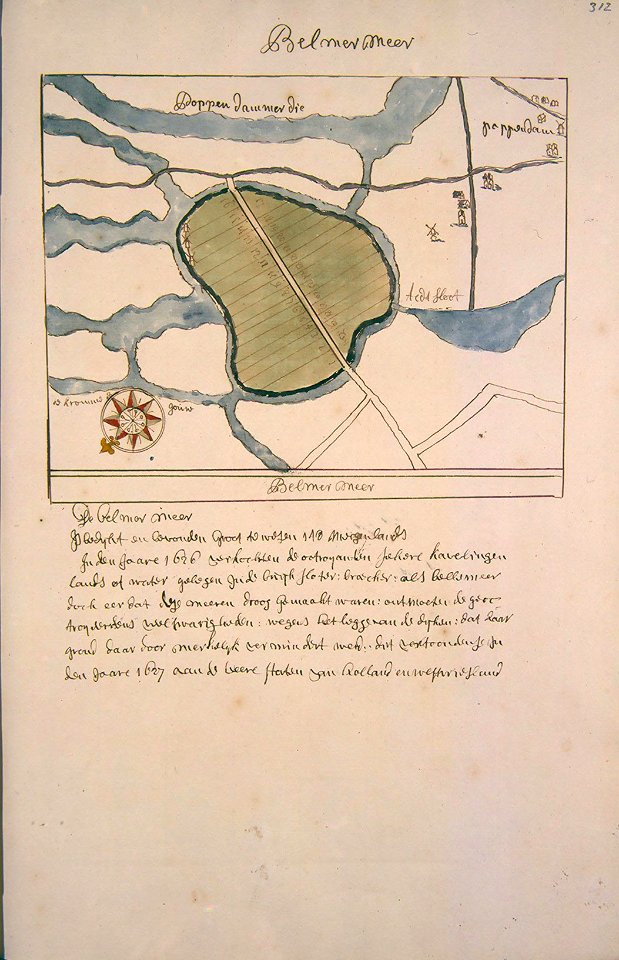 312
Belmer meer
Poppen dammer die
poppendam
Aeds sloot
de kromme
gouw
Belmer meer
De belmer meer
Is bedijkt en bevonden groot te wesen 118 morgen lands
In den Jaare 1626 verkochten de octroyanten sekere kavelingen
lands of water gelegen In de buijk sloter: broecker: als bellemeer
doch eer dat dese meeren droog gemaakt waren: ontmoeten de geoc
troyeerdens veel swarigheden: wegens het leggen van de dyken: dat haar
grond daar door merkelijk vermindert werd: dit vertoonden se In
den Jaare 1627 aan de heere staten van holland en westvriesland